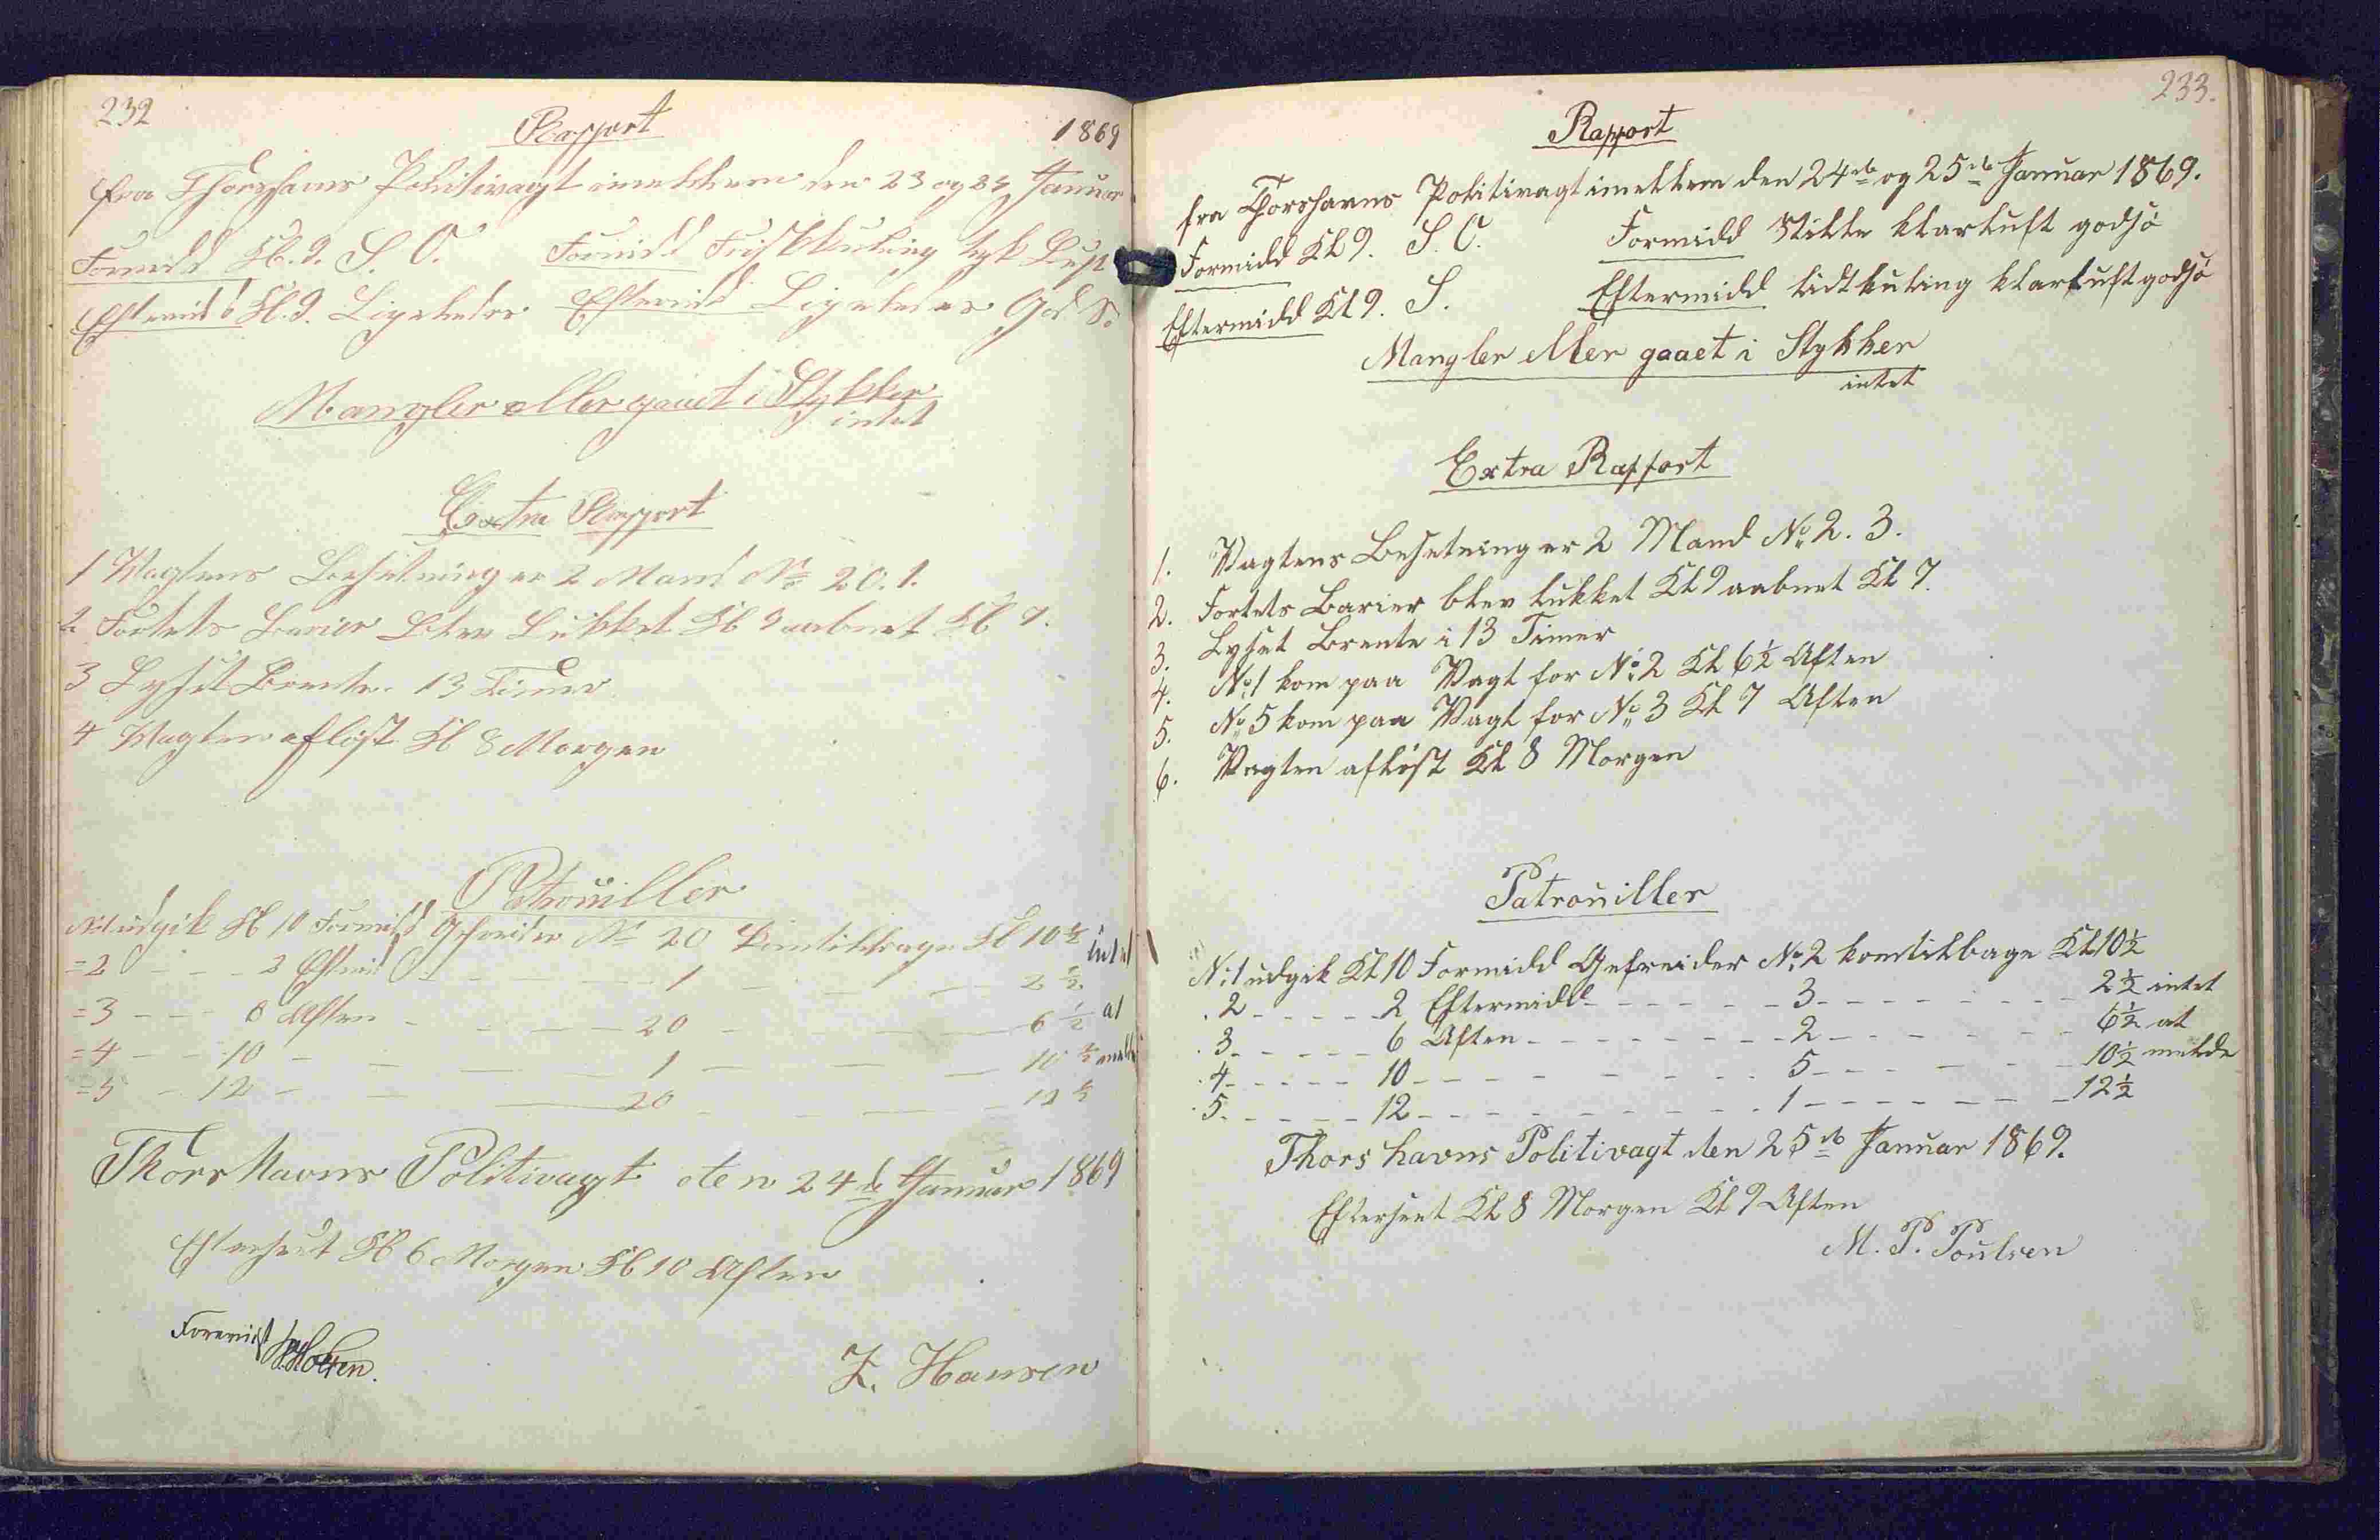 232
Rapport
1869
fra Thorshavns Politivagt imellem den 23 og 24 Januar
Formidd Kl. 9. S. O. Formidd Friskkuling tyk Luft
Eftermidd Kl. 9. Ligeledes Eftermidd Ligeledes God S.
Mangler eller gaaet i Stykker
intet
Extra Rapport
1 Vagtens Besetning er 2 Mand No 20. 1.
2 Fortets Barier blev Lukket Kl 9 aabnet Kl 7.
3 Lyset Brente 13 Timer
4 Vagten aflöst Kl 8 Morgen
Patrouiller
No 1 udgik Kl 10 Formidd Gefreider No 20 komtilbage Kl 10 1/2 intet
=2 - - - 2 Eftermid - - - 1 - - - 2 1/2
=3 - - - 6 Aften - - - 20 - - - 6 1/2 at
=4 - - 10 - - - 1 - - - 10 1/2 melde
=5 - 12 - - - 20 - - - 12 1/2
Thorshavns Politivagt den 24de Januar 1869
Efterseet Kl 6 Morgen Kl 10 Aften
Forevist
Z. Hansen
233.
Rapport
fra Thorshavns Politivagt imellem den 24de og 25de Januar 1869.
Formidd Kl 9. S. O. Formidd Stille klarluft godsö
Eftermidd Kl 9. S. Eftermidd lidtkuling klarluft godsö
Mangler eller gaaet i Stykker
intet
Extra Rapport
1. Vagtens Besetning er 2 Mand No 2. 3.
2. Fortets Barier blev lukket Kl 9 aabnet Kl 7.
3. Lyset Brente i 13 Timer
4. No 1 kom paa Vagt for No 2 Kl 6 1/2 Aften
5. No 5 kom paa Vagt for No 3 Kl 7 Aften
6. Vagten aflöst Kl 8 Morgen
Patrouiller
No 1 udgik Kl 10 Formidd Gefreider No 2 komtilbage Kl 10 1/2
. 2 - - - - - 2 Eftermidd - - - - - 3 - - - - - 2 1/2 intet
. 3 - - - - - 6 Aften - - - - - 2 - - - - - 6 1/2 at
. 4 - - - - - 10 - - - - - 5 - - - - - 10 1/2 melde
. 5 - - - - - 12 - - - - - 1 - - - - - 12 1/2
Thorshavns Politivagt den 25de Januar 1869.
Efterseet Kl 8 Morgen Kl 9 Aften
M. P. Poulsen